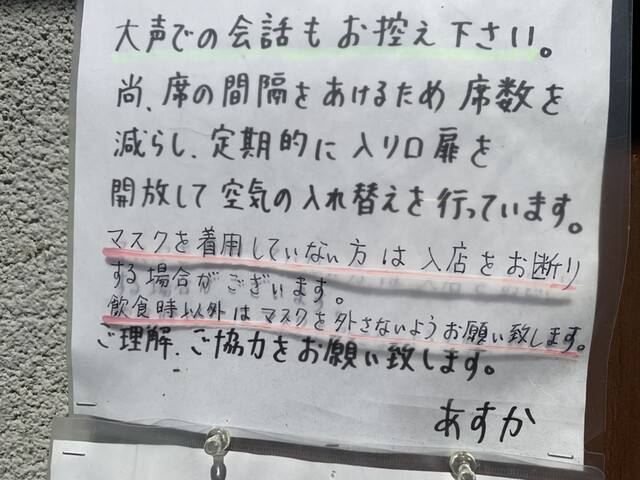 大声での会話もお控え下さい。
尚、席の間隔をあけるため席数を
減らし、定期的に入り口扉を
開放して空気の入れ替えを行っています。
マスクを着用していない方は入店をお断り
する場合がございます。
飲食時以外はマスクを外さないようお願い致します。
ご理解、ご協力をお願い致します。
あすか